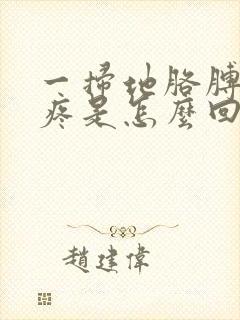 一掃地胳膊
疼是怎麼回
趙建偉